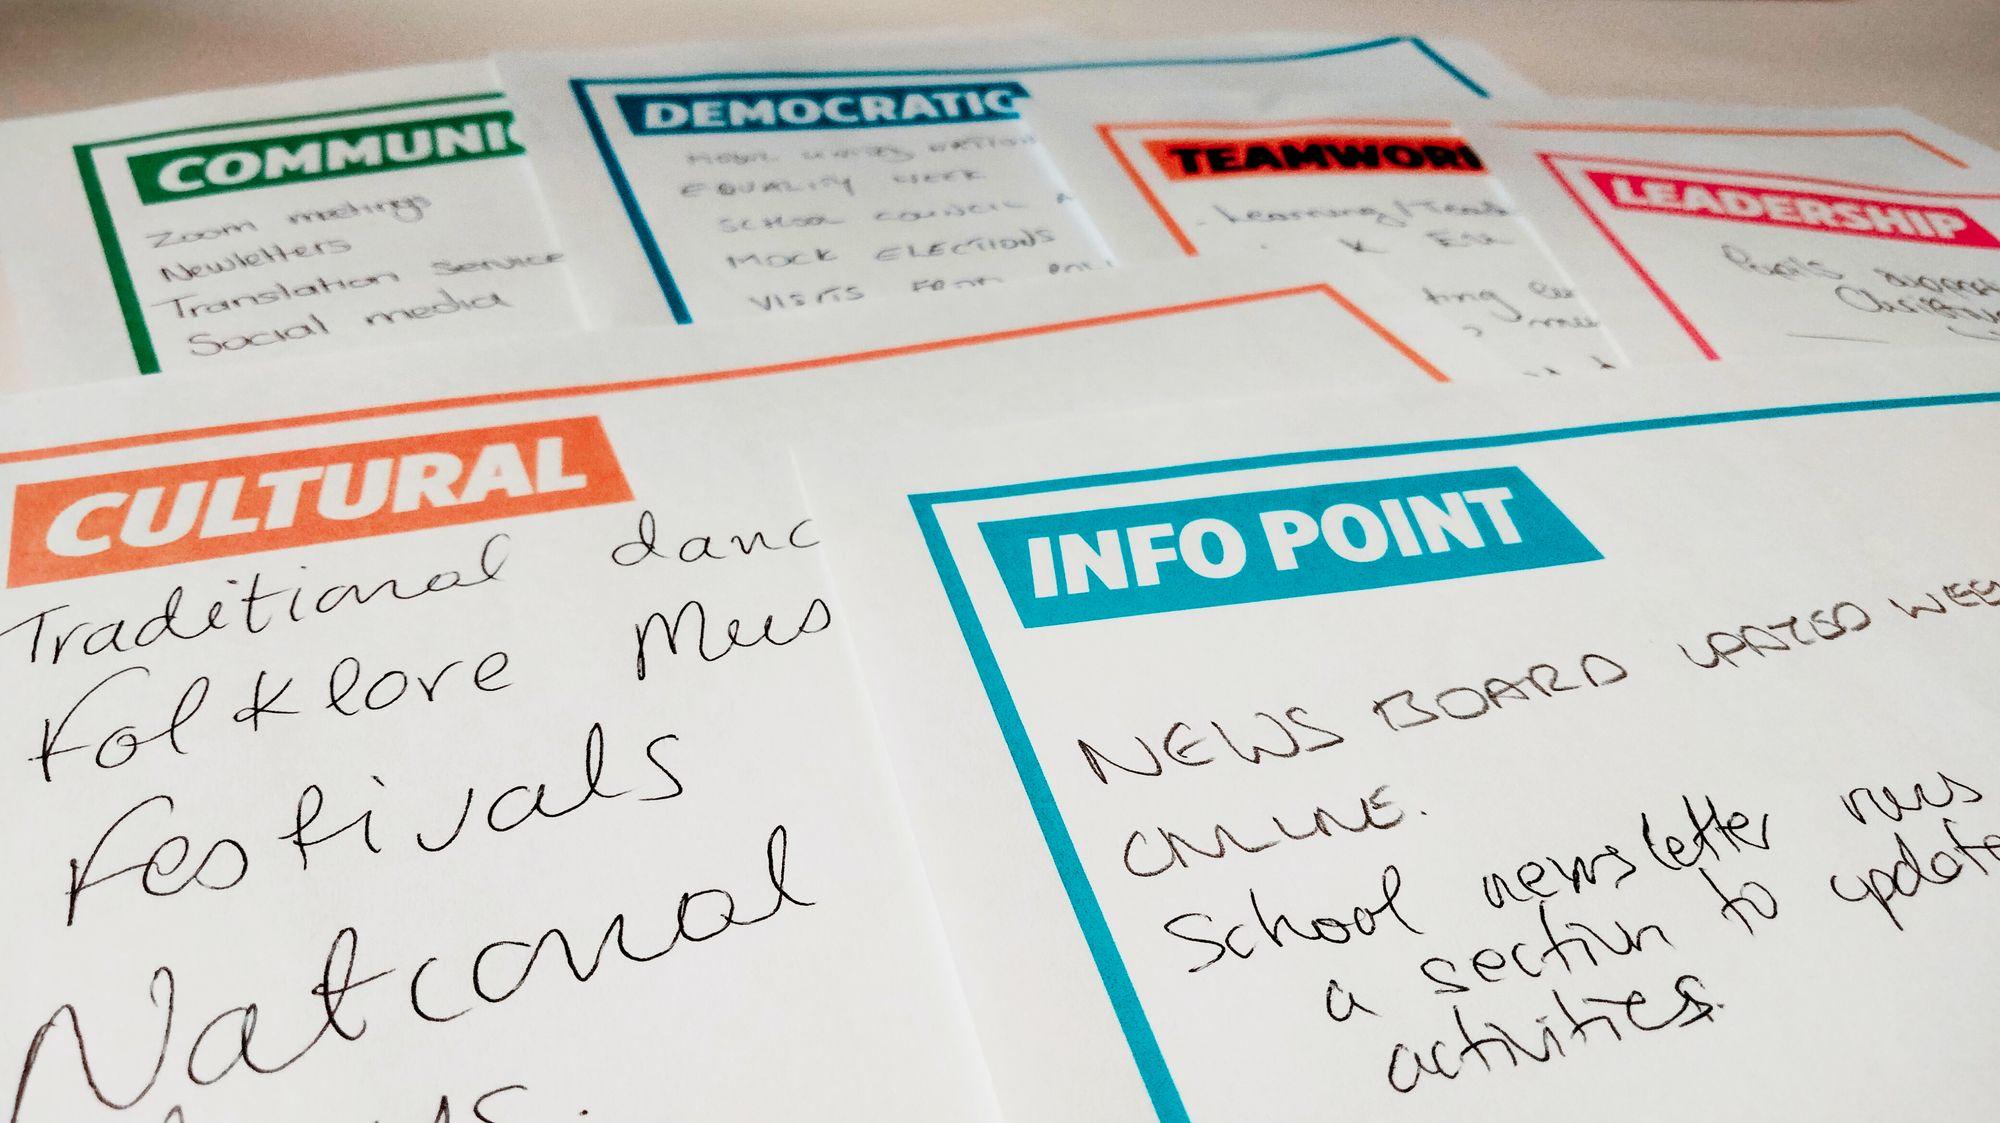 COMMUNIC
Zoom meetings
Newletters
Translation service
Social media
DEMOCRATIC
EQUALITY WEEK
SCHOOL COUNCIL
MOCK ELECTIONS
VISITS FROM
TEAMWORK
- Learning / Teach
LEADERSHIP
CULTURAL
Traditional danc
Folklore Mus
Festivals
National
INFO POINT
NEWS BOARD UPATED WEE
ONLINE.
School newsletter runs
a section to update
activities.